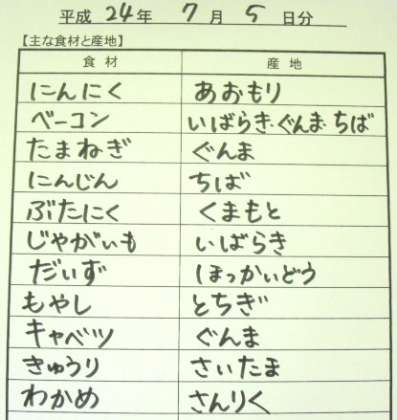 平成 24年 7月 5日分
【主な食材と産地】
食材 産地
にんにく あおもり
ベーコン いばらき・ぐんま・ちば
たまねぎ ぐんま
にんじん ちば
ぶたにく くまもと
じゃがいも いばらき
だいず ほっかいどう
もやし とちぎ
キャベツ ぐんま
きゅうり さいたま
わかめ さんりく